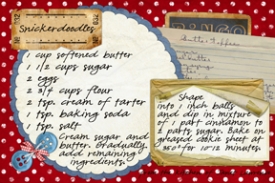 Snickerdoodles
1 cup softened butter
1 1/2 cups sugar
2 eggs
2 3/4 cups flour
2 tsp. cream of tarter
1 tsp. baking soda
1 tsp. salt
Cream sugar and
butter. Gradually
add remaining
ingredients.
Shape
into 1 inch balls
and dip in mixture
of 1 part cinnamon to
2 parts sugar. Bake on
greased cookie sheet at
350° for 10-12 minutes.
BINGO